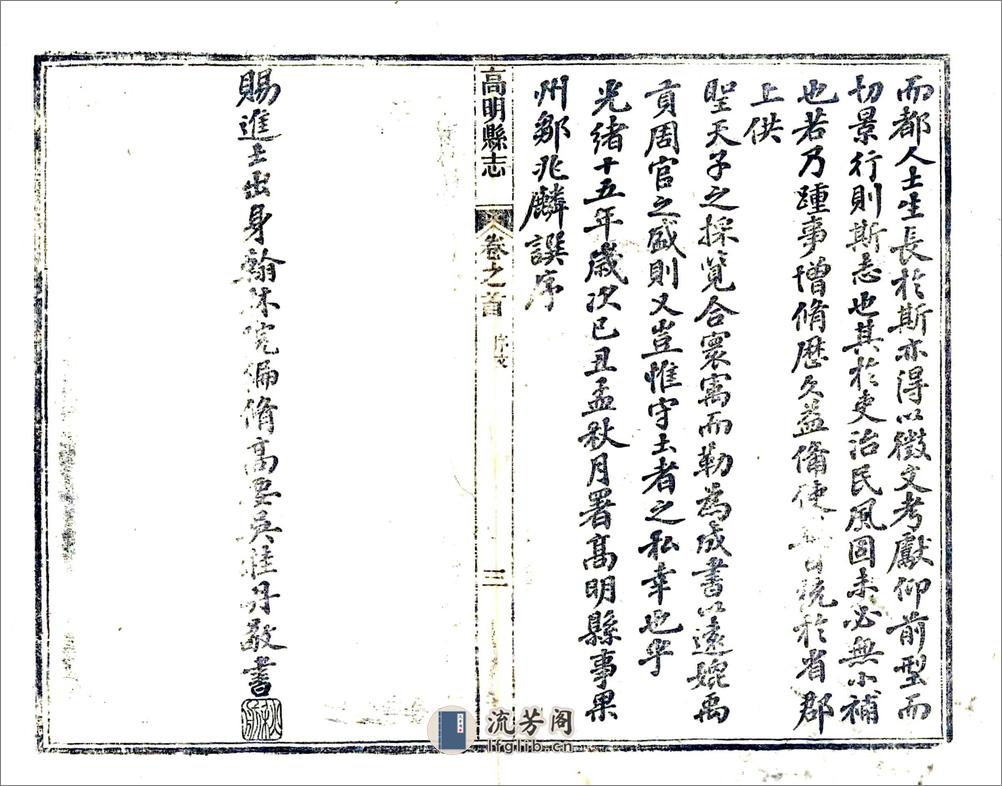 而都人士生長於斯亦得以徵文考獻仰前型而
切景行則斯志也其於吏治民風固未必無小補
也若乃踵事增脩歷久益備使 統於省郡
上供
聖天子之採覽合寰寓而勒為成書以遠媲禹
貢周官之盛則又豈惟守土者之私幸也乎
光緒十五年歲次己丑孟秋月署高明縣事果
州鄒兆麟譔序
高明縣志
卷之首
序文
三
賜進士出身翰林院編脩高要吳桂丹敬書
流芳阁
lfglib.cn